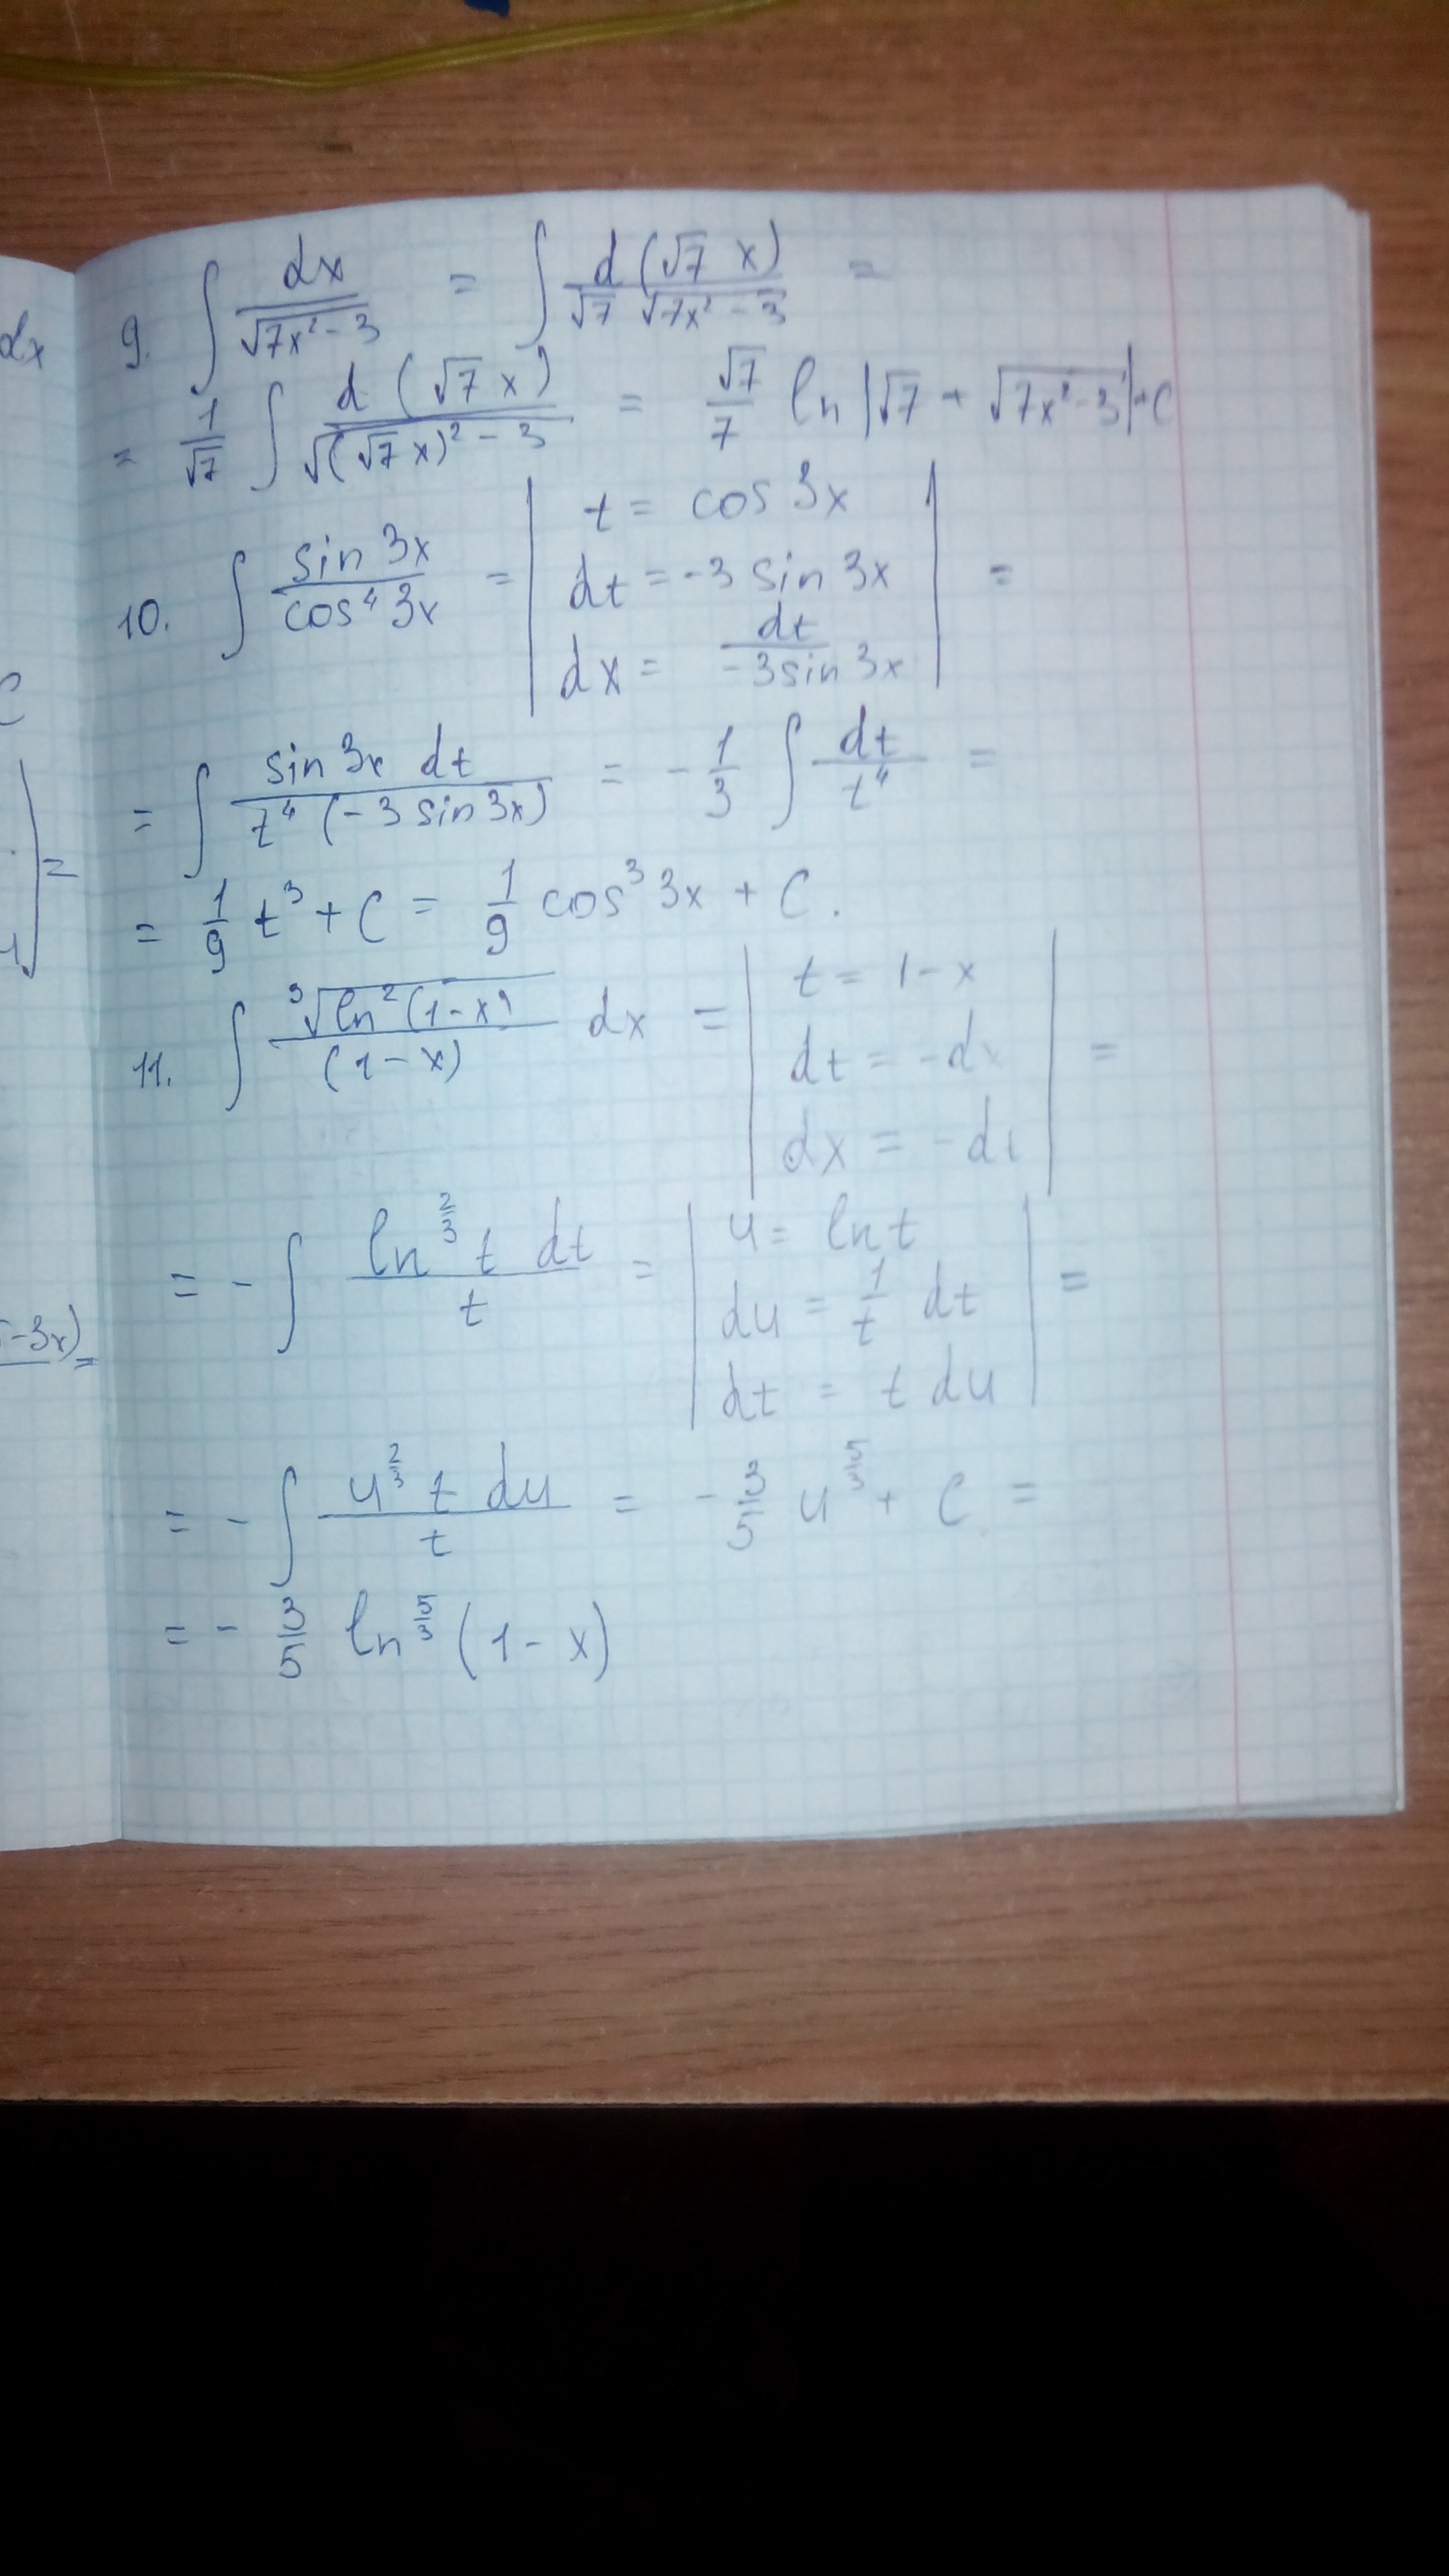 9. ∫ dx / √(7x² - 3) = ∫ d(√7 x) / (√7 √(7x² - 3)) =
= 1/√7 ∫ d(√7 x) / √((√7 x)² - 3) = √7/7 ln |√7 + √(7x² - 3)| + C
10. ∫ sin 3x / cos⁴ 3x = | t = cos 3x
dt = -3 sin 3x
dx = dt / (-3 sin 3x) | =
= ∫ sin 3x dt / (t⁴ (-3 sin 3x)) = - 1/3 ∫ dt / t⁴ =
= 1/9 t³ + C = 1/9 cos³ 3x + C.
11. ∫ ³√(ln² (1-x)) / (1-x) dx = | t = 1-x
dt = -dx
dx = -dt | =
= - ∫ ln^(2/3) t dt / t = | u = ln t
du = 1/t dt
dt = t du | =
= - ∫ u^(2/3) t du / t = - 3/5 u^(5/3) + C =
= - 3/5 ln^(5/3) (1-x)
dx
C
-3x) =